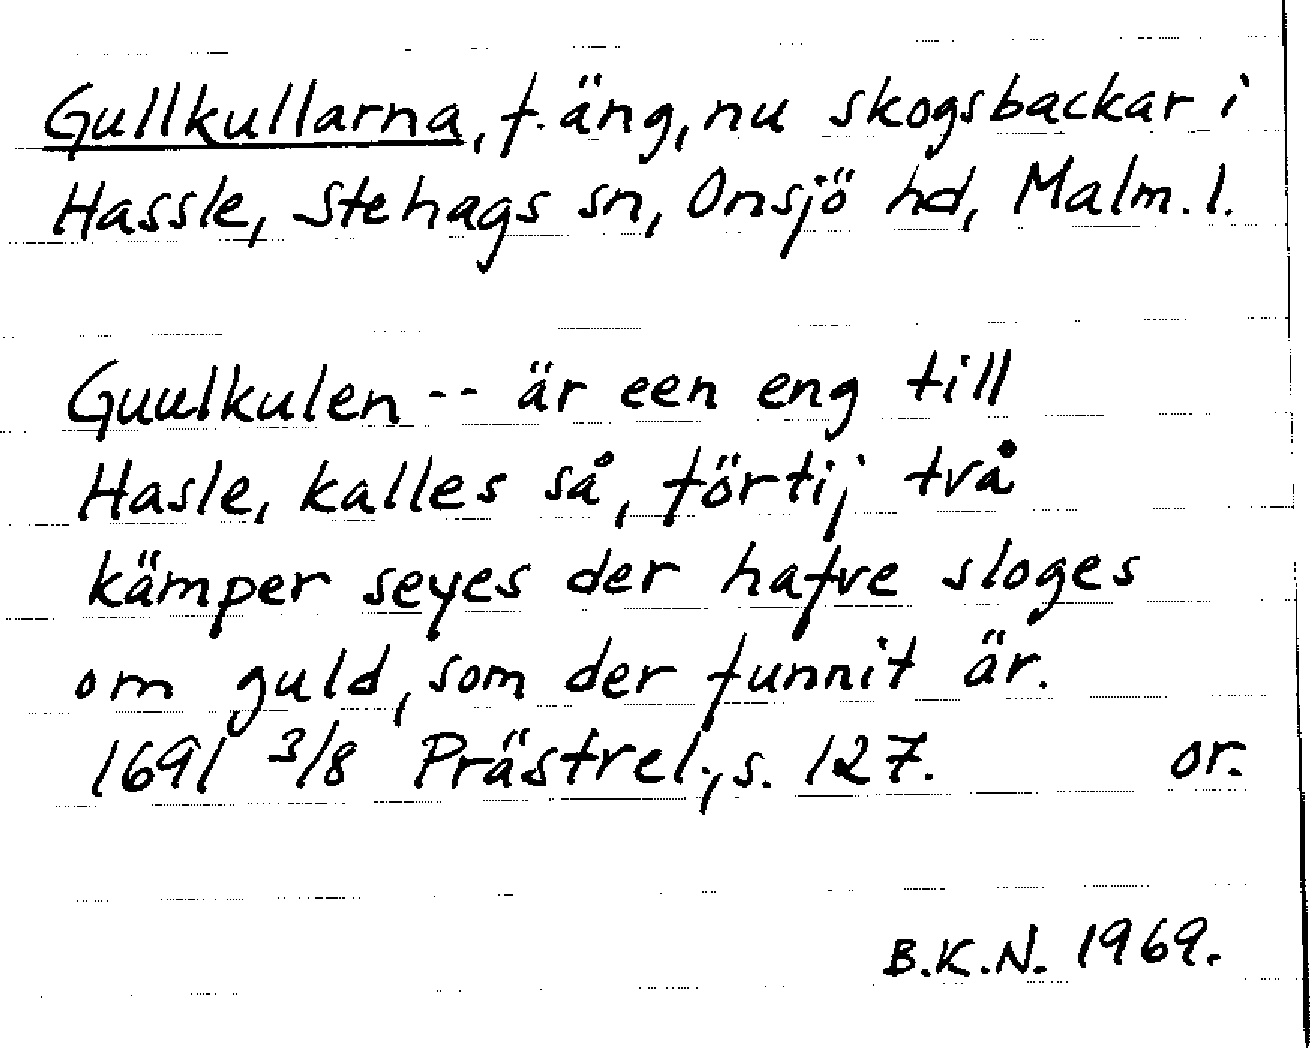 Gullkullarna, f. äng, nu skogsbackar i
Hassle, Stehags sn, Onsjö hd, Malm. l.
Guulkulen -- är een eng till
Hasle, kalles så, förtij två
kämper seyes der hafve sloges
om guld, som der funnit är.
1691 3/8 Prästrel., s. 127. or.
B.K.N. 1969.